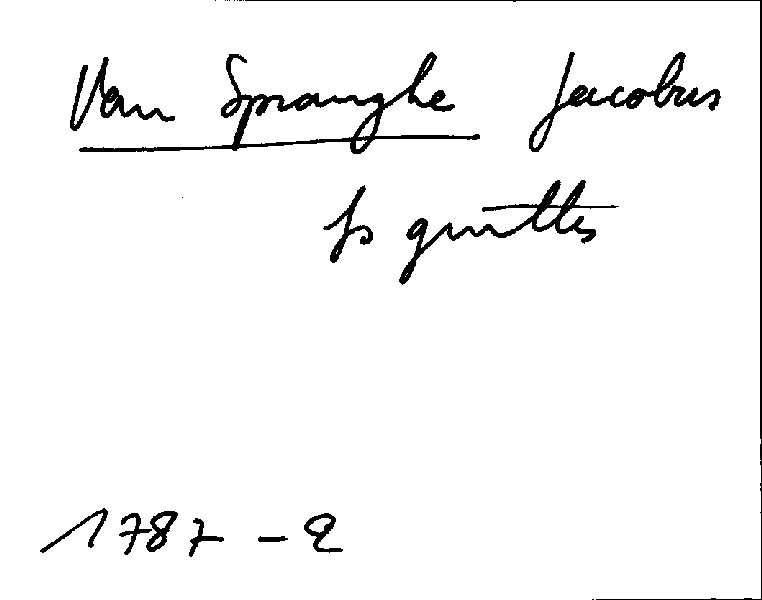 Van Spranghe Jacobus
fs guilles
1787 - 2